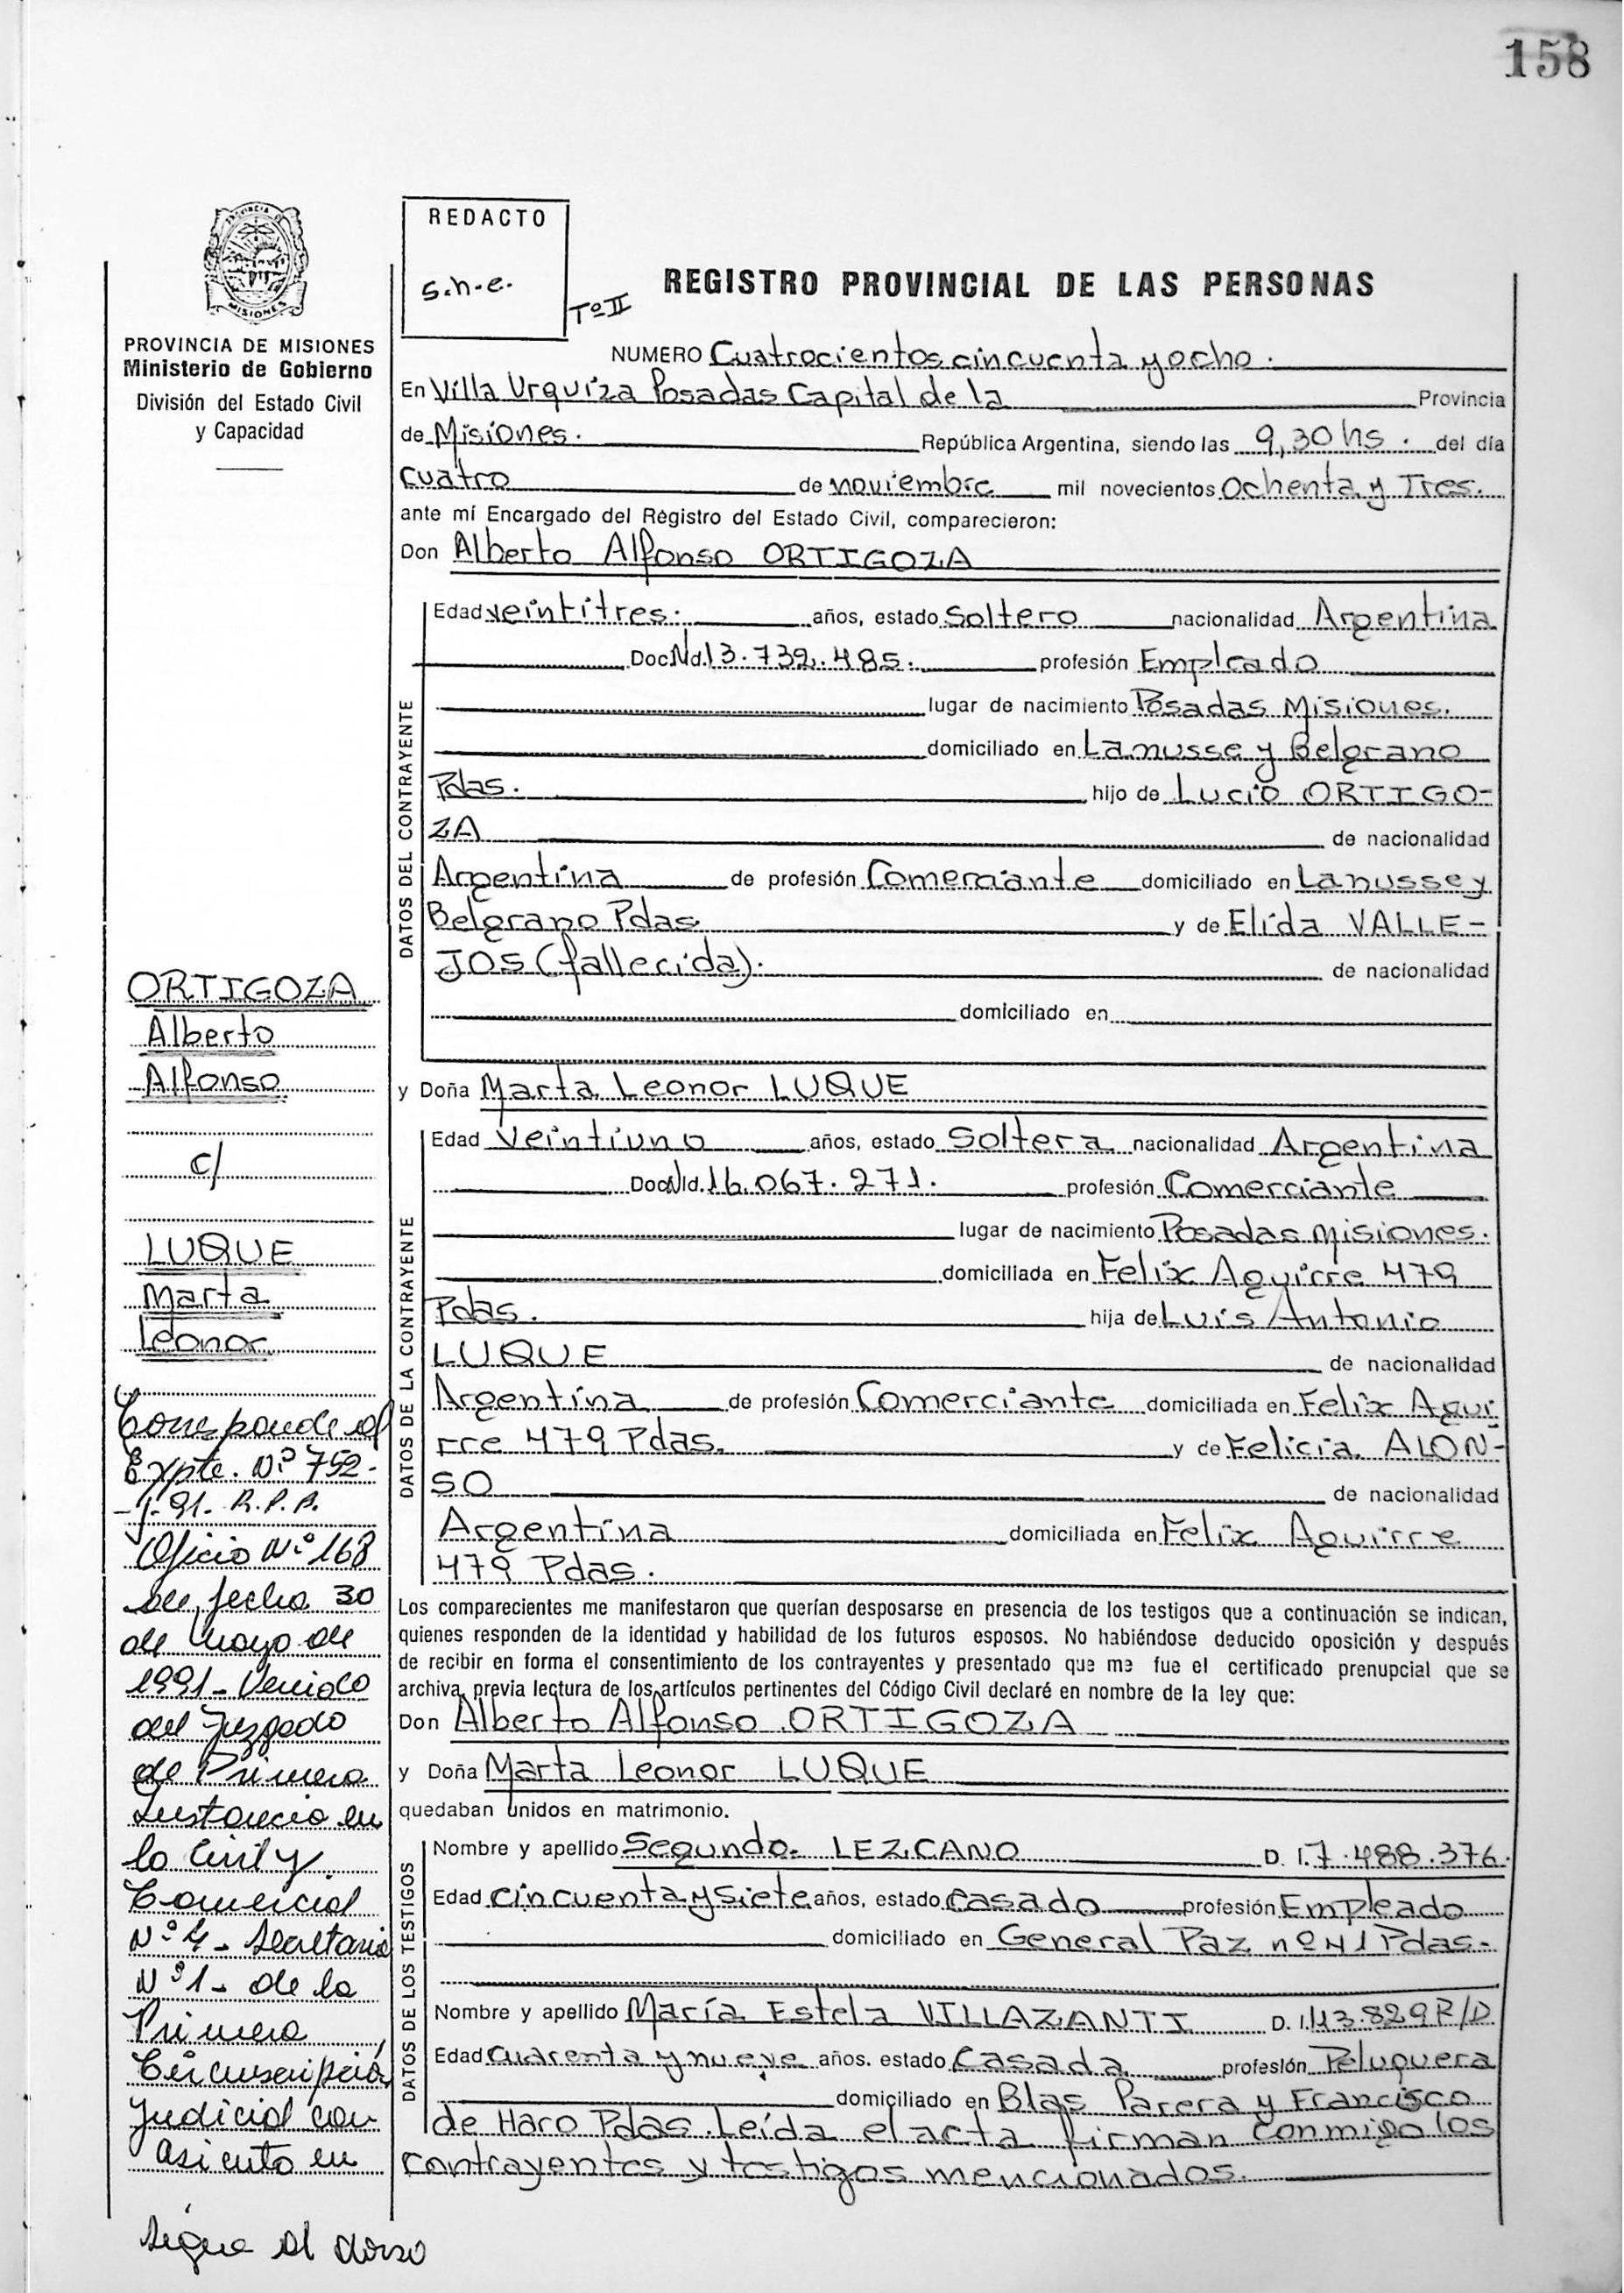 158
PROVINCIA DE
MISIONES
PROVINCIA DE MISIONES
Ministerio de Gobierno
División del Estado Civil
y Capacidad
REDACTO
S.h.e.
Tº II
REGISTRO PROVINCIAL DE LAS PERSONAS
NUMERO Cuatrocientos cincuenta y ocho.
En Villa Urquiza Posadas Capital de la Provincia
de Misiones. República Argentina, siendo las 9,30 hs. del día
cuatro de noviembre mil novecientos Ochenta y Tres.
ante mí Encargado del Registro del Estado Civil, comparecieron:
Don Alberto Alfonso ORTIGOZA
DATOS DEL CONTRAYENTE
Edad veintitres. años, estado Soltero nacionalidad Argentina
Doc.Nd. 13.732.485. profesión Empleado
lugar de nacimiento Posadas Misiones.
domiciliado en Lanusse y Belgrano
Pdas. hijo de Lucio ORTIGO-
ZA de nacionalidad
Argentina de profesión Comerciante domiciliado en Lanusse y
Belgrano Pdas. y de Elida VALLE-
JOS (fallecida). de nacionalidad
domiciliado en
y Doña Marta Leonor LUQUE
DATOS DE LA CONTRAYENTE
Edad Veintiuno años, estado Soltera nacionalidad Argentina
Doc.Nd. 16.067.271. profesión Comerciante
lugar de nacimiento Posadas Misiones.
domiciliada en Felix Aguirre 479
Pdas. hija de Luis Antonio
LUQUE de nacionalidad
Argentina de profesión Comerciante domiciliada en Felix Agui
rre 479 Pdas. y de Felicia ALON-
SO de nacionalidad
Argentina domiciliada en Felix Aguirre
479 Pdas.
Los comparecientes me manifestaron que querían desposarse en presencia de los testigos que a continuación se indican,
quienes responden de la identidad y habilidad de los futuros esposos. No habiéndose deducido oposición y después
de recibir en forma el consentimiento de los contrayentes y presentado que me fue el certificado prenupcial que se
archiva, previa lectura de los artículos pertinentes del Código Civil declaré en nombre de la ley que:
Don Alberto Alfonso ORTIGOZA
y Doña Marta Leonor LUQUE
quedaban unidos en matrimonio.
DATOS DE LOS TESTIGOS
Nombre y apellido Segundo LEZCANO D. I. 7.488.376.
Edad cincuenta y siete años, estado casado profesión Empleado
domiciliado en General Paz nº 41 Pdas.
Nombre y apellido María Estela VILLAZANTI D. I. 113.829 R/D
Edad cuarenta y nueve años. estado Casada profesión Peluquera
domiciliado en Blas Parera y Francisco
de Haro Pdas. Leída el acta firman conmigo los
contrayentes y testigos mencionados.
ORTIGOZA
Alberto
Alfonso
c/
LUQUE
Marta
Leonor
Corresponde al
Expte. Nº 752-
-J- 91. R.P.P.
Oficio Nº 168
de fecha 30
de Mayo de
1991 - Venido
del Juzgado
de Primera
Instancia en
lo Civil y
Comercial
Nº 4 - Secretaria
Nº 1 - de la
Primera
Circunscripción
Judicial con
asiento en
Sigue al dorso